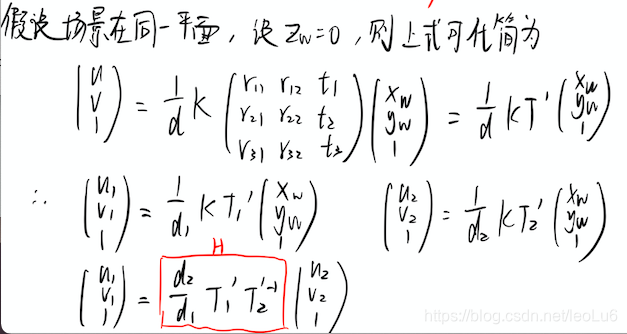 假设场景在同一平面，设 Zw=0，则上式可化简为
(u v 1) = 1/d K (r11 r12 t1 r21 r22 t2 r31 r32 t3) (xw yw 1) = 1/d KT' (xw yw 1)
∴ (u1 v1 1) = 1/d1 KT1' (xw yw 1) (u2 v2 1) = 1/d2 KT2' (xw yw 1)
H
(u1 v1 1) = d2/d1 T1' T2'-1 (u2 v2 1)
https://blog.csdn.net/leoLu6